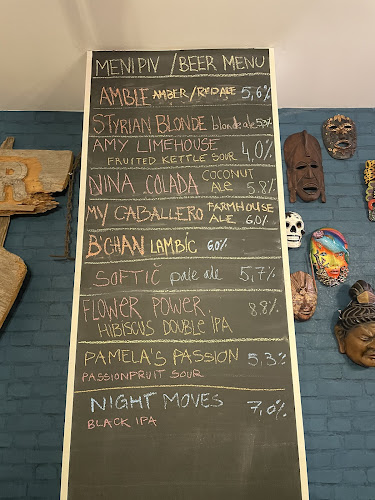 MENI PIV / BEER MENU
AMBLE AMBER/RED ALE 5,6%
STYRIAN BLONDE blonde ale 5,5%
AMY LIMEHOUSE
FRUITED KETTLE SOUR 4,0%
NINA COLADA COCONUT
ALE 5.8%
MY CABALLERO FARMHOUSE
ALE 6,0%
B'CHAN LAMBIC 6,0%
SOFTIČ pale ale 5,7%
FLOWER POWER 8,8%
HIBISCUS DOUBLE IPA
PAMELA'S PASSION 5,3%
PASSIONFRUIT SOUR
NIGHT MOVES 7,0%
BLACK IPA
R